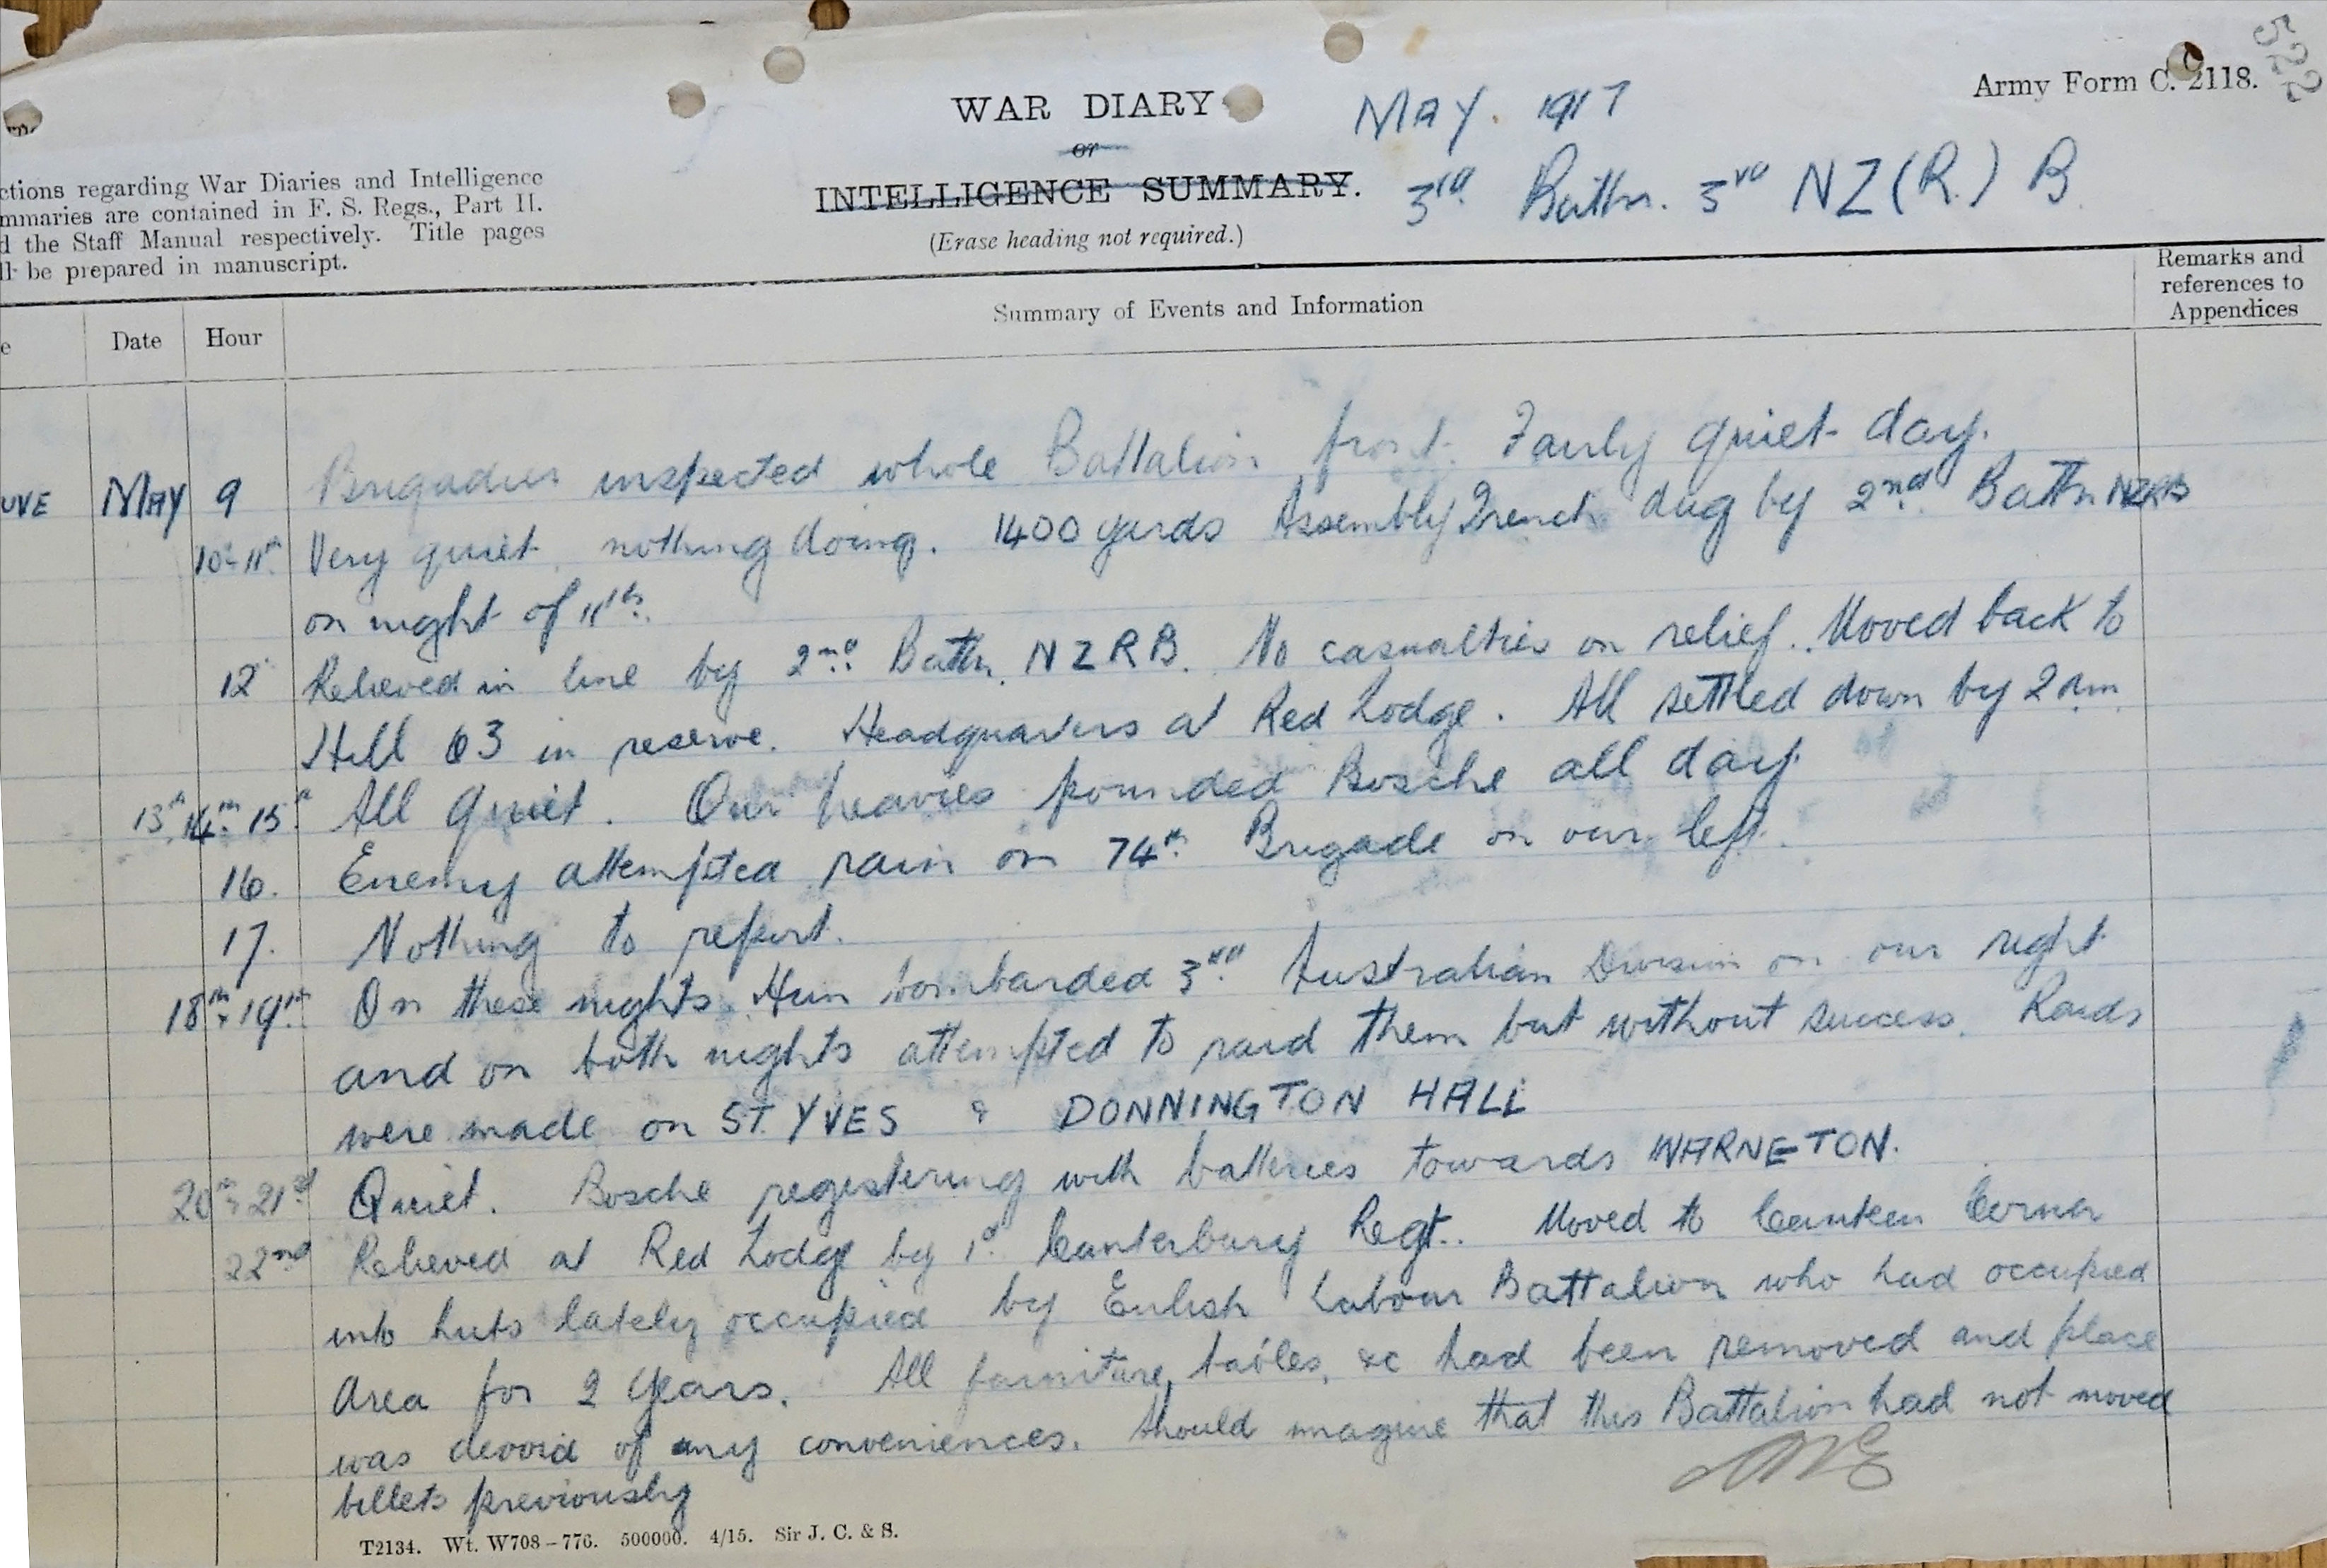 522
Army Form C. 2118.
WAR DIARY
or
INTELLIGENCE SUMMARY.
(Erase heading not required.)
MAY. 1917
3rd Battn. 3rd NZ(R.) B.
ctions regarding War Diaries and Intelligence
mmaries are contained in F. S. Regs., Part II.
d the Staff Manual respectively. Title pages
ll be prepared in manuscript.
e Date Hour Summary of Events and Information
Remarks and
references to
Appendices
UVE MAY 9 Brigadier inspected whole Battalion front. Fairly quiet day.
10-11th Very quiet nothing doing. 1400 yards Assembly Trench dug by 2nd Battn NZRB
on night of 11th.
12 Relieved in line by 2nd Battn. NZRB. No casualties on relief. Moved back to
Hill 63 in reserve. Headquarters at Red Lodge. All settled down by 2 am
13th 14th 15th All quiet. Our heavies pounded Bosche all day.
16. Enemy attempted raid on 74th Brigade on our left.
17. Nothing to report.
18th & 19th On these nights Hun bombarded 3rd Australian Division on our right
and on both nights attempted to raid them but without success. Raids
were made on ST. YVES & DONNINGTON HALL
20th & 21st Quiet. Bosche registering with batteries towards WARNETON.
22nd Relieved at Red Lodge by 1st Canterbury Regt. Moved to Canteen Corner
into huts lately occupied by Enlish Labour Battalion who had occupied
area for 2 years. All furniture, tables, &c had been removed and place
was devoid of any conveniences. Should imagine that this Battalion had not moved
billets previously
T2134. Wt. W708-776. 500000. 4/15. Sir J. C. & S.